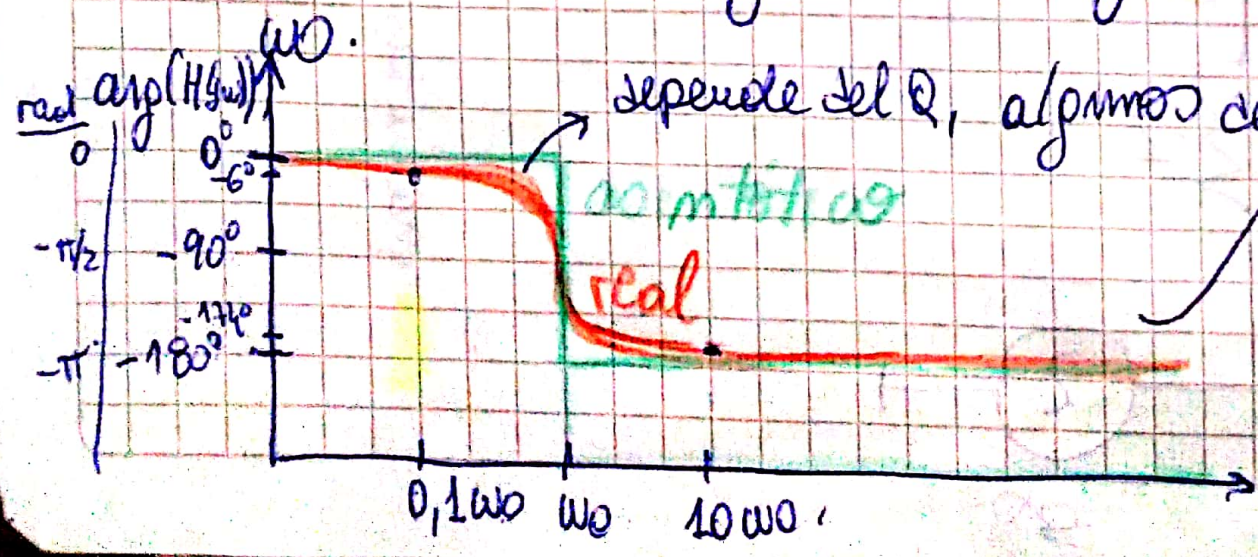 ω0.
rad arg(H(jω))
depende del Q, algunos de
0 0°
-6°
asintótico
-π/2 -90°
real
-174°
-π -180°
0,1ω0 ω0 10ω0.